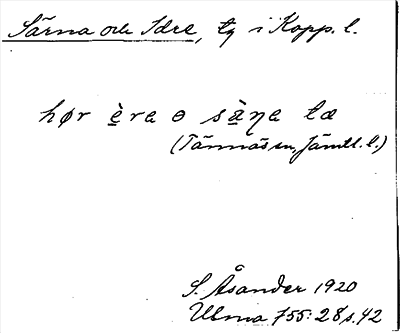 Särna och Idre, ty i Kopp. l.
hør è̲ra ɵ sà̲ŋa tæ
(Tännäs sn, Jämtl. l.)
S. Åsander 1920
Ulma 755: 28 s. 42